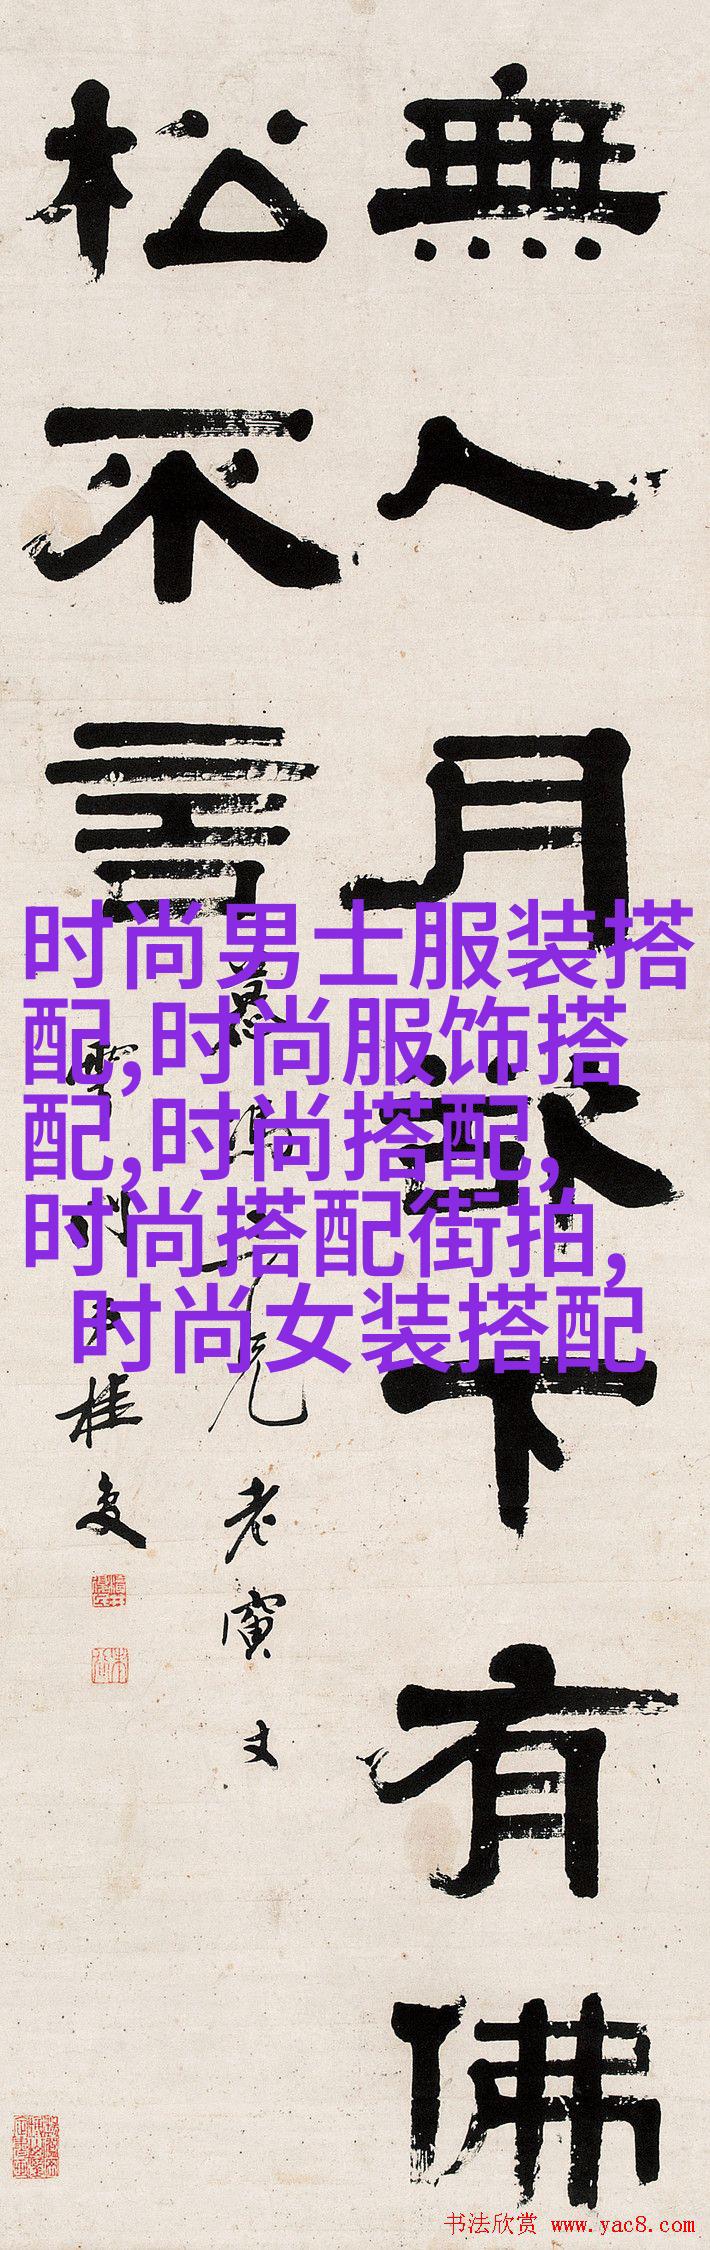 無人月下有佛
松不言
兄老寅丈
桂
时尚男士服装搭
配,时尚服饰搭
配,时尚搭配,
时尚搭配街拍,
时尚女装搭配
书法欣赏 www.yac8.com